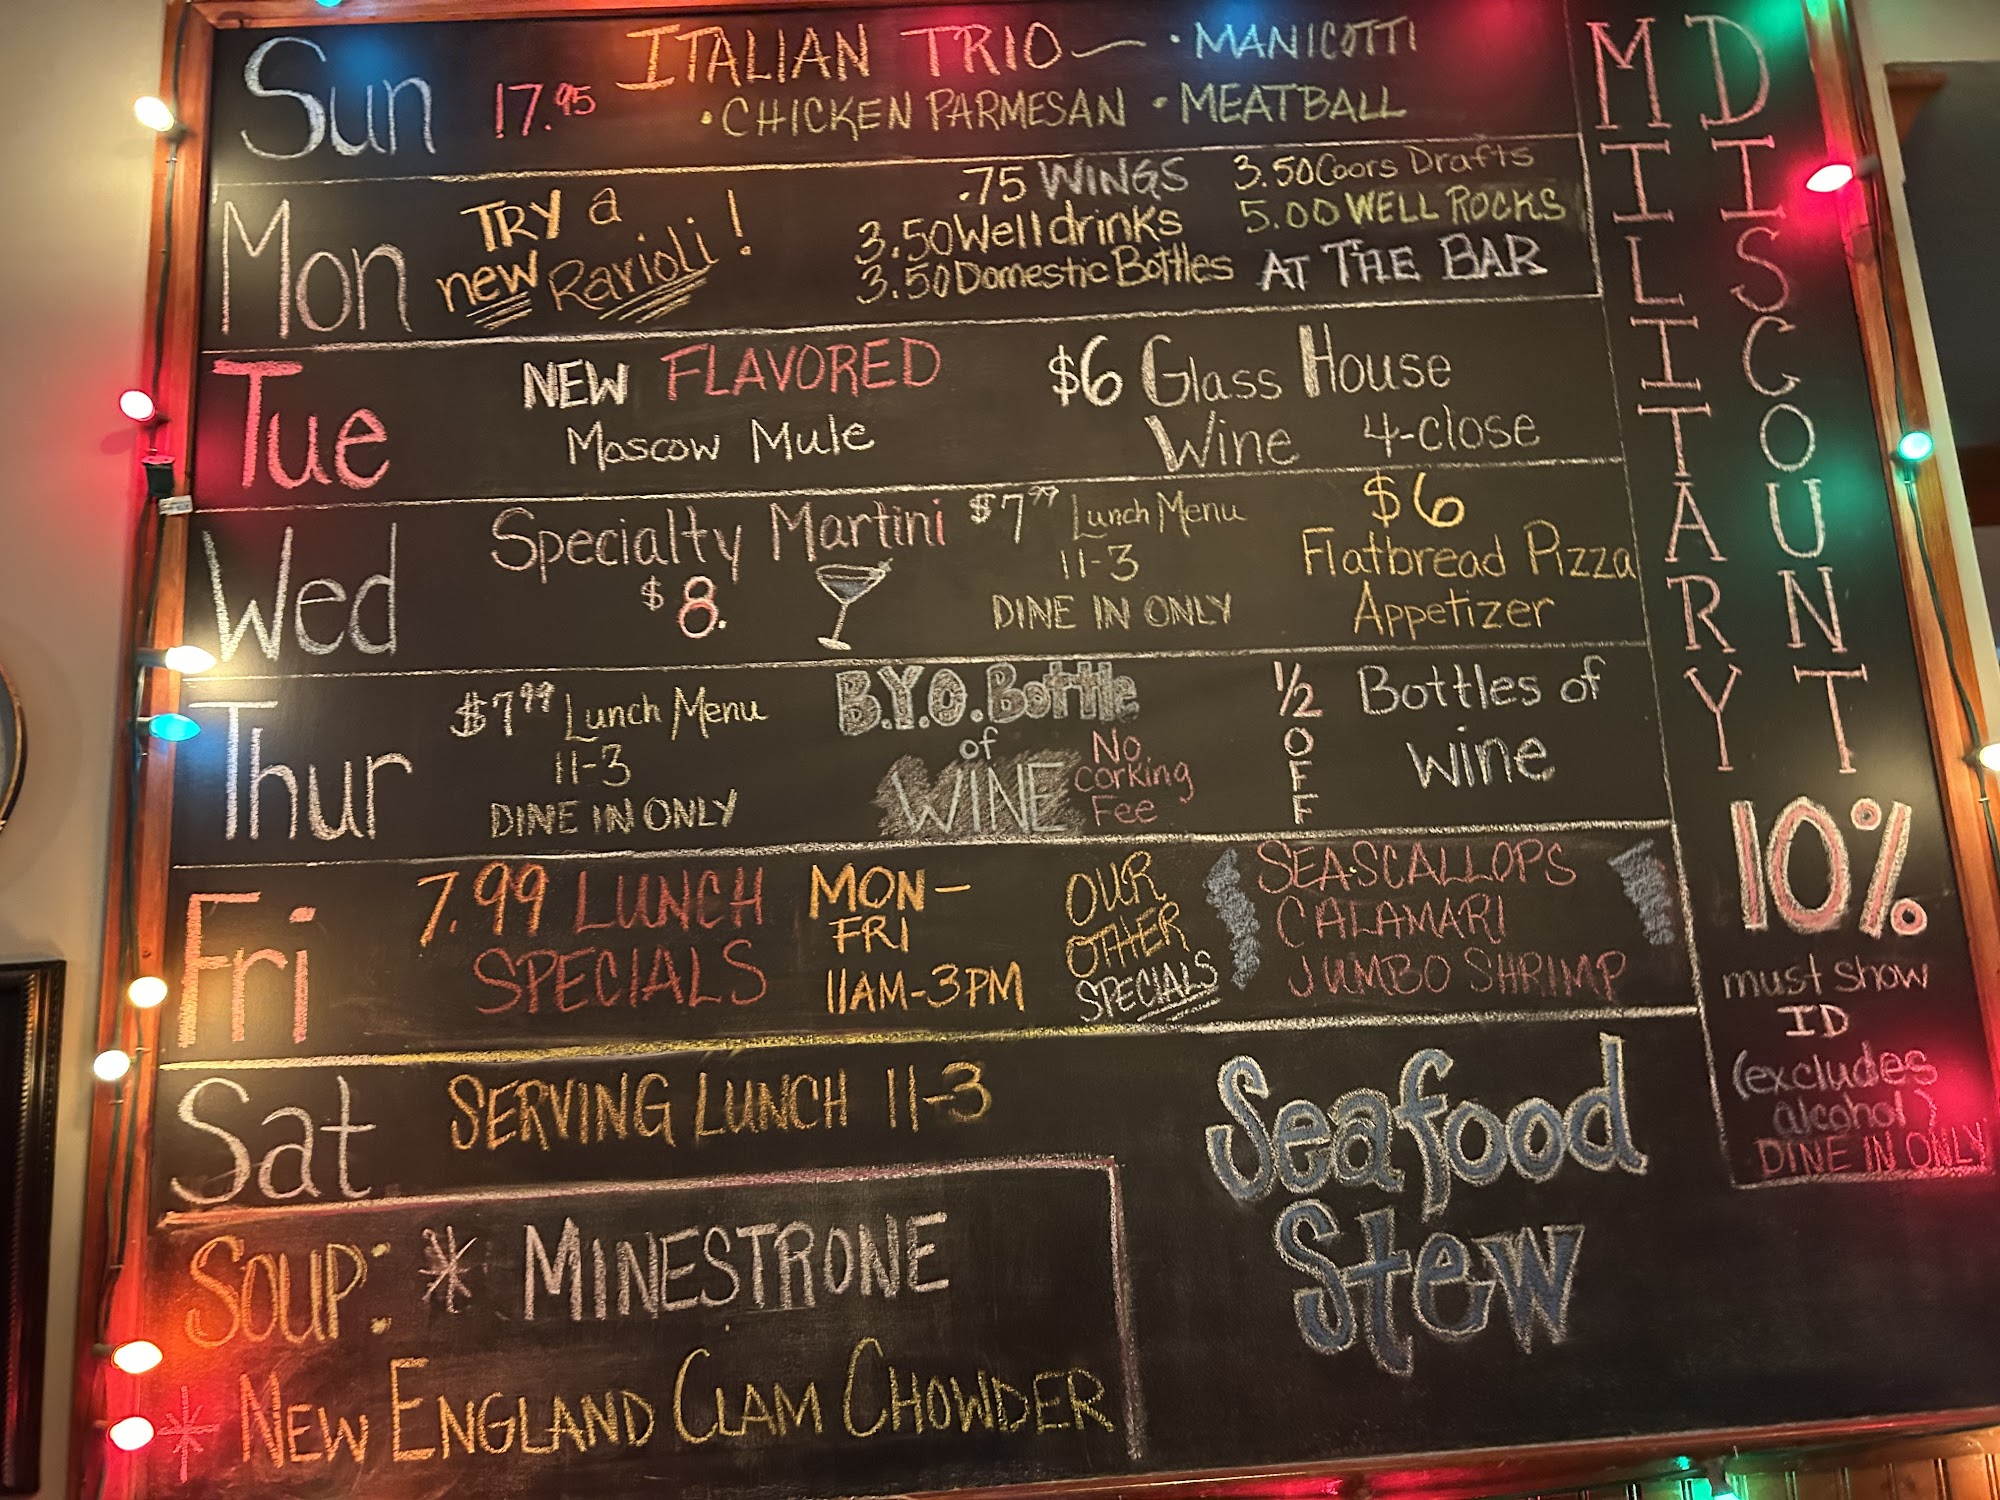 Sun 17.95 ITALIAN TRIO — • MANICOTTI
• CHICKEN PARMESAN • MEATBALL
Mon TRY a
new Ravioli!
.75 WINGS
3.50 Well drinks
3.50 Domestic Bottles
3.50 Coors Drafts
5.00 WELL ROCKS
AT THE BAR
Tue NEW FLAVORED
Moscow Mule
$6 Glass House
Wine 4-close
Wed Specialty Martini
$8.
$7.99 Lunch Menu
11-3
DINE IN ONLY
$6
Flatbread Pizza
Appetizer
Thur $7.99 Lunch Menu
11-3
DINE IN ONLY
B.Y.O. Bottle
of
WINE
No
corking
Fee
1/2
OFF
Bottles of
wine
Fri 7.99 LUNCH
SPECIALS
MON-
FRI
11AM-3PM
OUR
OTHER
SPECIALS
SEA•SCALLOPS
CALAMARI
JUMBO SHRIMP
Sat SERVING LUNCH 11-3
Seafood
Stew
SOUP: * MINESTRONE
* NEW ENGLAND CLAM CHOWDER
MILITARY
DISCOUNT
10%
must show
ID
(excludes
alcohol)
DINE IN ONLY